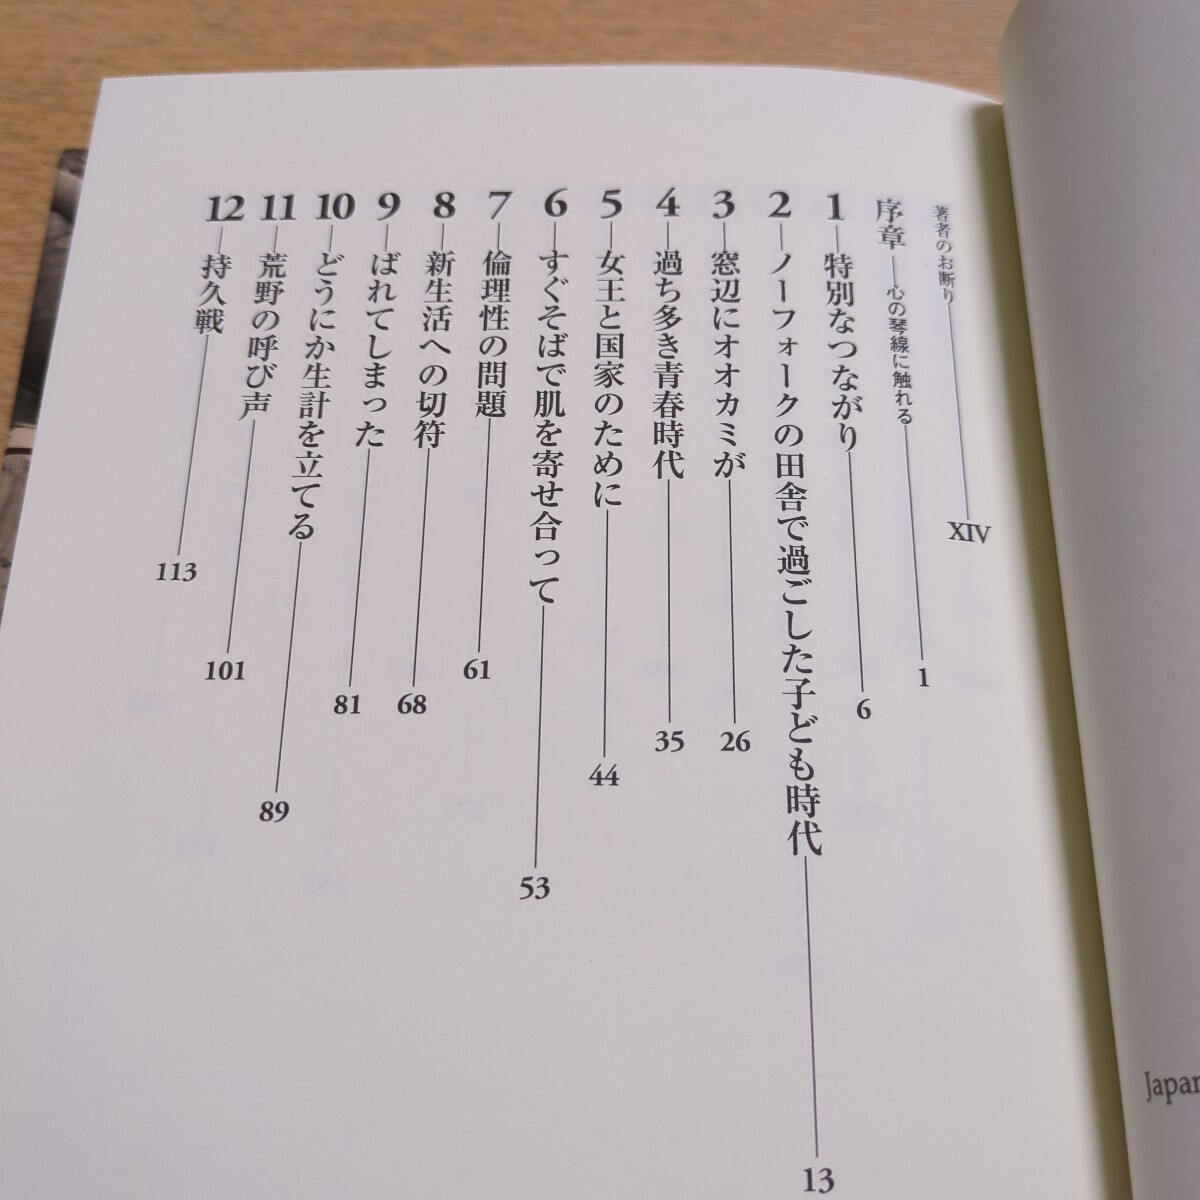 著者のお断り XIV
序章―心の琴線に触れる 1
1―特別なつながり 6
2―ノーフォークの田舎で過ごした子ども時代 13
3―窓辺にオオカミが 26
4―過ち多き青春時代 35
5―女王と国家のために 44
6―すぐそばで肌を寄せ合って 53
7―倫理性の問題 61
8―新生活への切符 68
9―ばれてしまった 81
10―どうにか生計を立てる 89
11―荒野の呼び声 101
12―持久戦 113